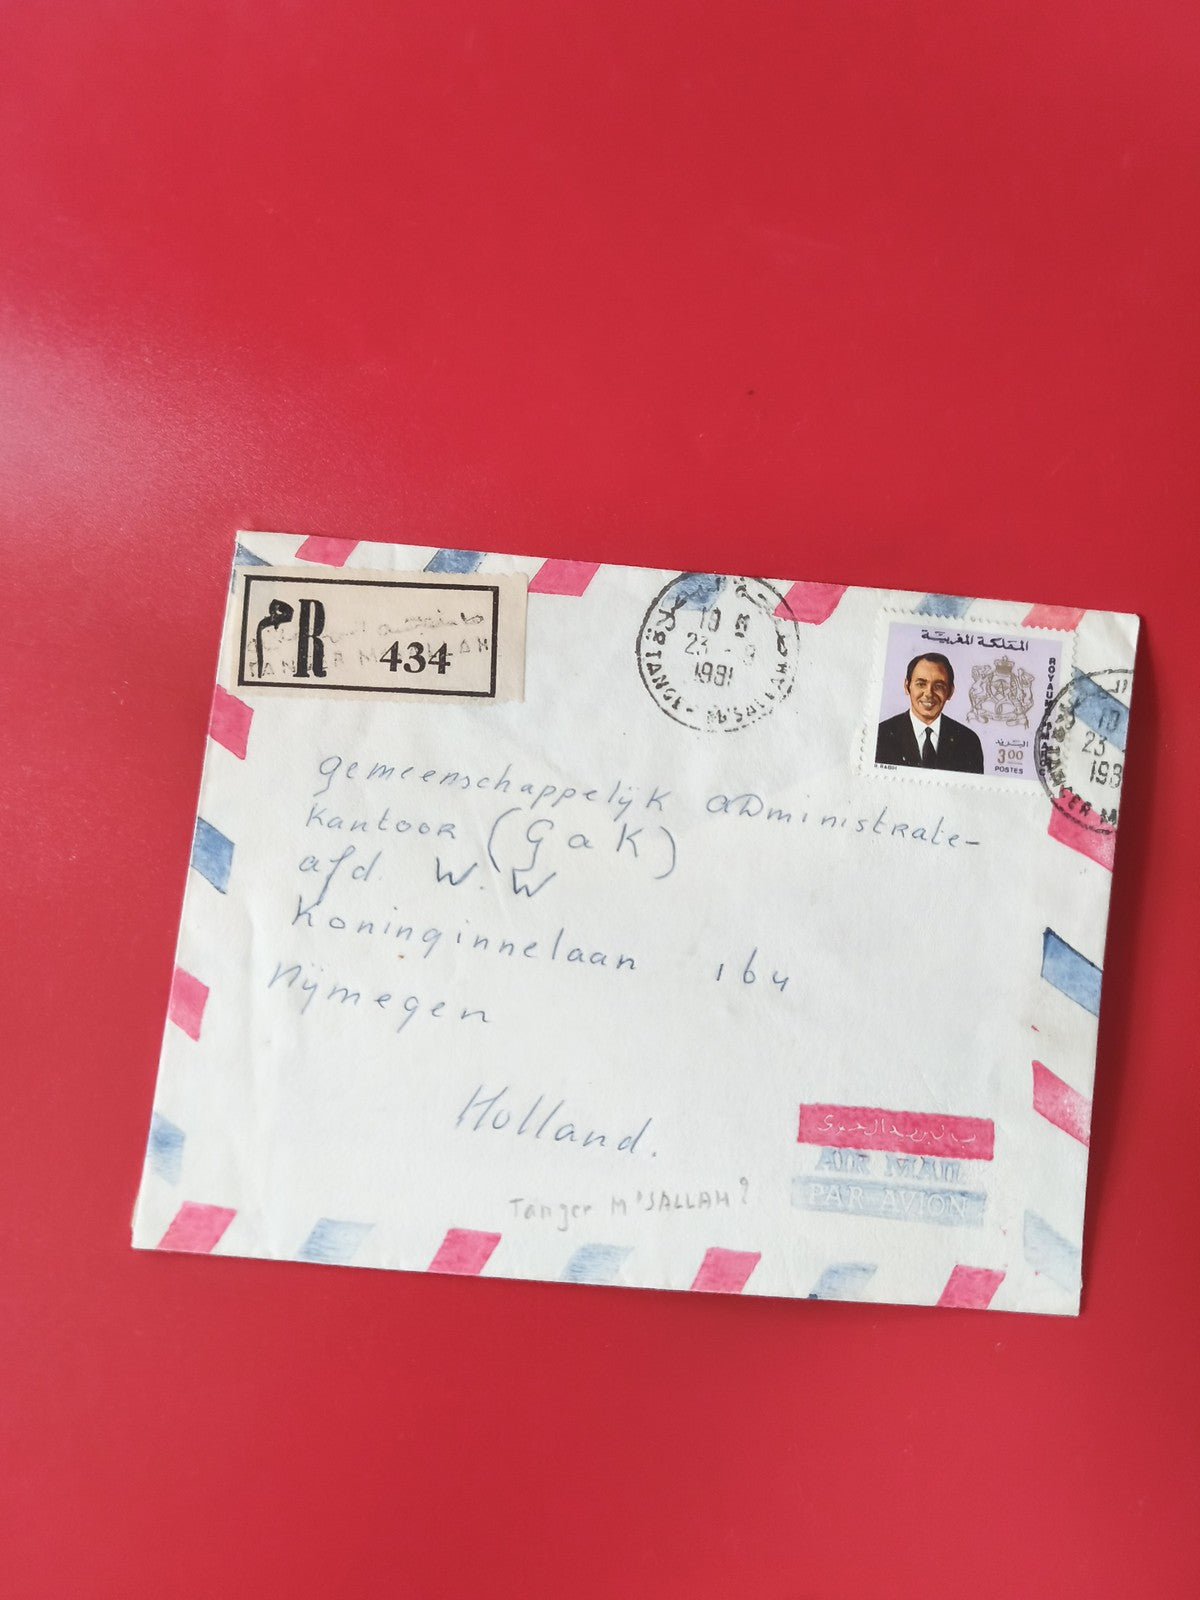 R 434
TANGER M'SALLAH
10
23 - 9
1981
TANGER - M'SALLAH
المملكة المغربية
ROYAUME DU MAROC
البريد
3.00
POSTES
10
23
198
TANGER M
gemeenschappelijk administratie-
kantoor (GaK)
afd. W.W
Koninginnelaan 164
Nijmegen
Holland.
Tanger M'SALLAH?
AIR MAIL
PAR AVION